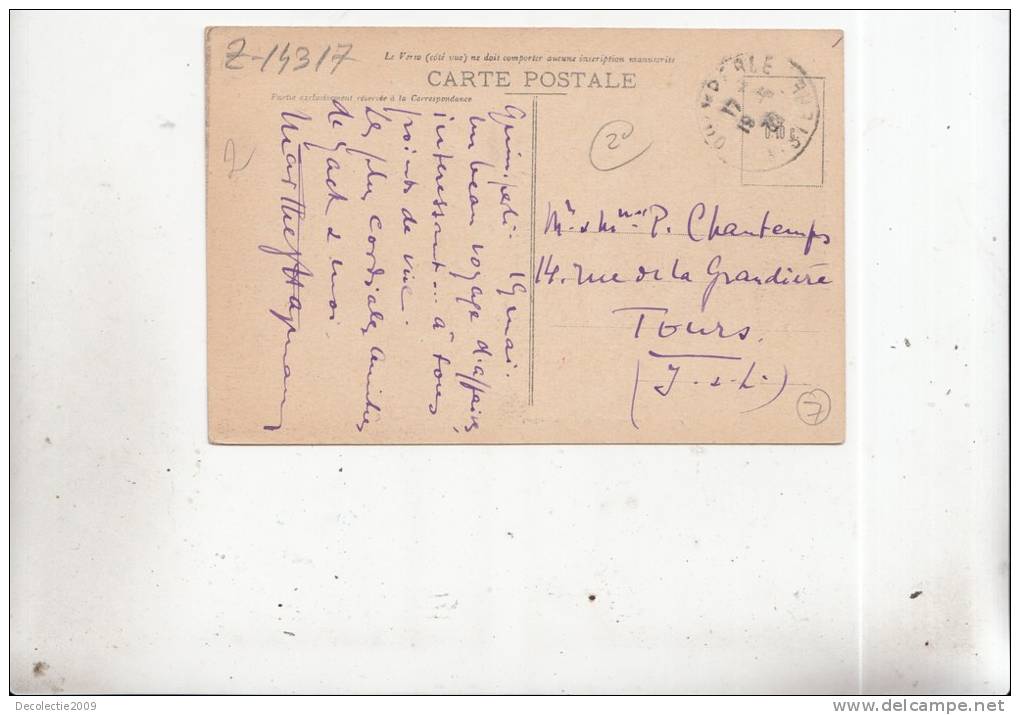 Z-14317
Le Verso (côté vue) ne doit comporter aucune inscription manuscrite
CARTE POSTALE
Partie exclusivement réservée à la Correspondance
Quimperlé. 19 mai.
Un beau voyage d'affaires,
interessant... à tous
points de vue.
Les plus cordiales amitiés
de Jack & moi.
Marthe
2
20
QUIMPERLE
FINISTERE
17
19
Mr & Mme P. Chantemps
14. rue de la Grandière
Tours.
(I-&-L.)
7
Decolectie2009
www.delcampe.net